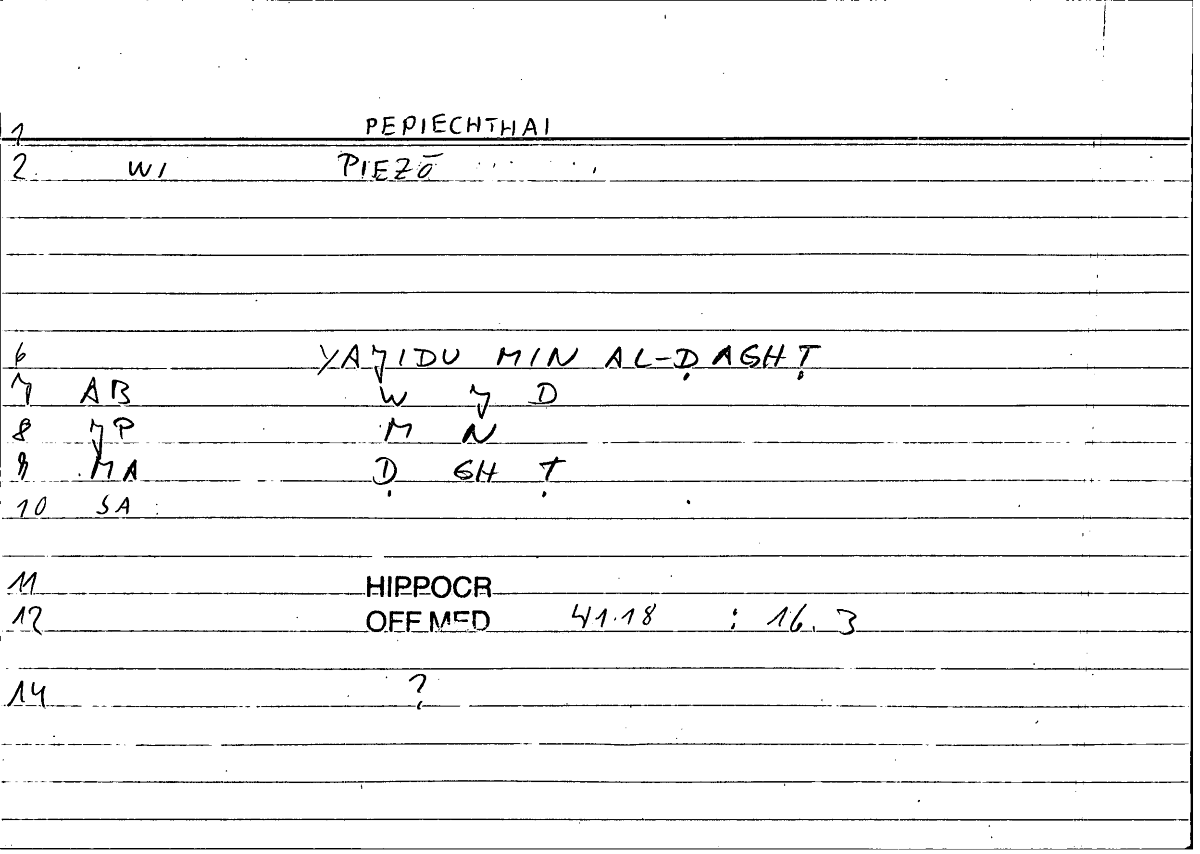 1 PEPIECHTHAI
2. WI PIEZŌ
6 YAJIDU MIN AL-ḌAGHṬ
7 AB W J D
8 JP M N
9 MA Ḍ GH Ṭ
10 SA
11 HIPPOCR
12 OFF MED 41.18 : 16.3
14 ?